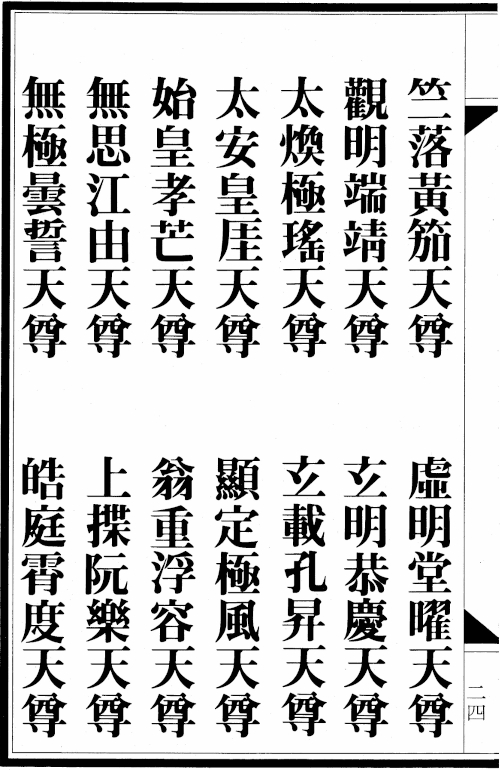 竺落黃笳天尊　虛明堂曜天尊
觀明端靖天尊　玄明恭慶天尊
太煥極瑤天尊　玄載孔昇天尊
太安皇厓天尊　顯定極風天尊
始皇孝芒天尊　翁重浮容天尊
無思江由天尊　上揲阮樂天尊
無極曇誓天尊　皓庭霄度天尊
二四